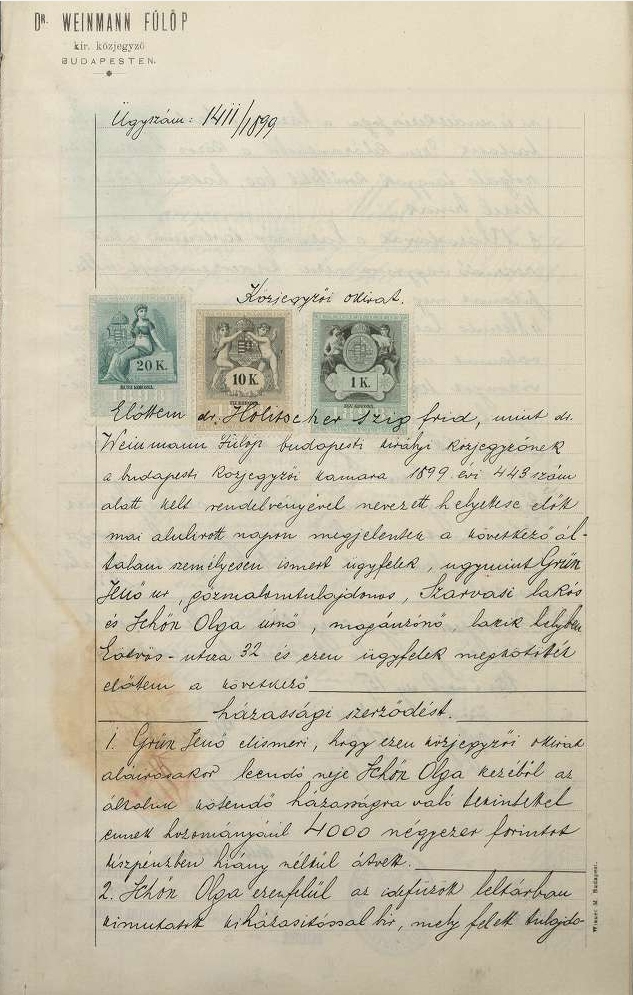 Dr. WEINMANN FÜLÖP
kir. közjegyző
BUDAPESTEN.
Ügyszám: 1411/1899
Közjegyzői okirat.
20 K.
HUSZ KORONA.
10 K.
TIZ KORONA.
1 K.
EGY KORONA.
Előttem dr. Holitscher Szigfrid, mint dr.
Weinmann Fülöp budapesti királyi közjegyzőnek
a budapesti közjegyzői kamara 1899. évi 443 szám
alatt kelt rendelvényével nevezett helyettese előtt
mai alulirott napon megjelentek a következő ál-
talam személyesen ismert ügyfelek, ugymint Grün
Jenő ur, gőzmalomtulajdonos, Szarvasi lakós
és Schön Olga úrnő, magánzónő, lakik helyben
Eötvös-utcza 32 és ezen ügyfelek megkötötték
előttem a következő
házassági szerződést.
1. Grün Jenő elismeri, hogy ezen közjegyzői okirat
aláirásakor leendő neje Schön Olga kezéből az
általuk kötendő házasságra való tekintettel
ennek hozományául 4000 négyezer forintot
készpénzben hiány nélkül átvett.
2. Schön Olga ezenfelül az idefűzött leltárban
kimutatott kiházasitással bir, mely felett tulajdo-
Wieser M. Budapest.